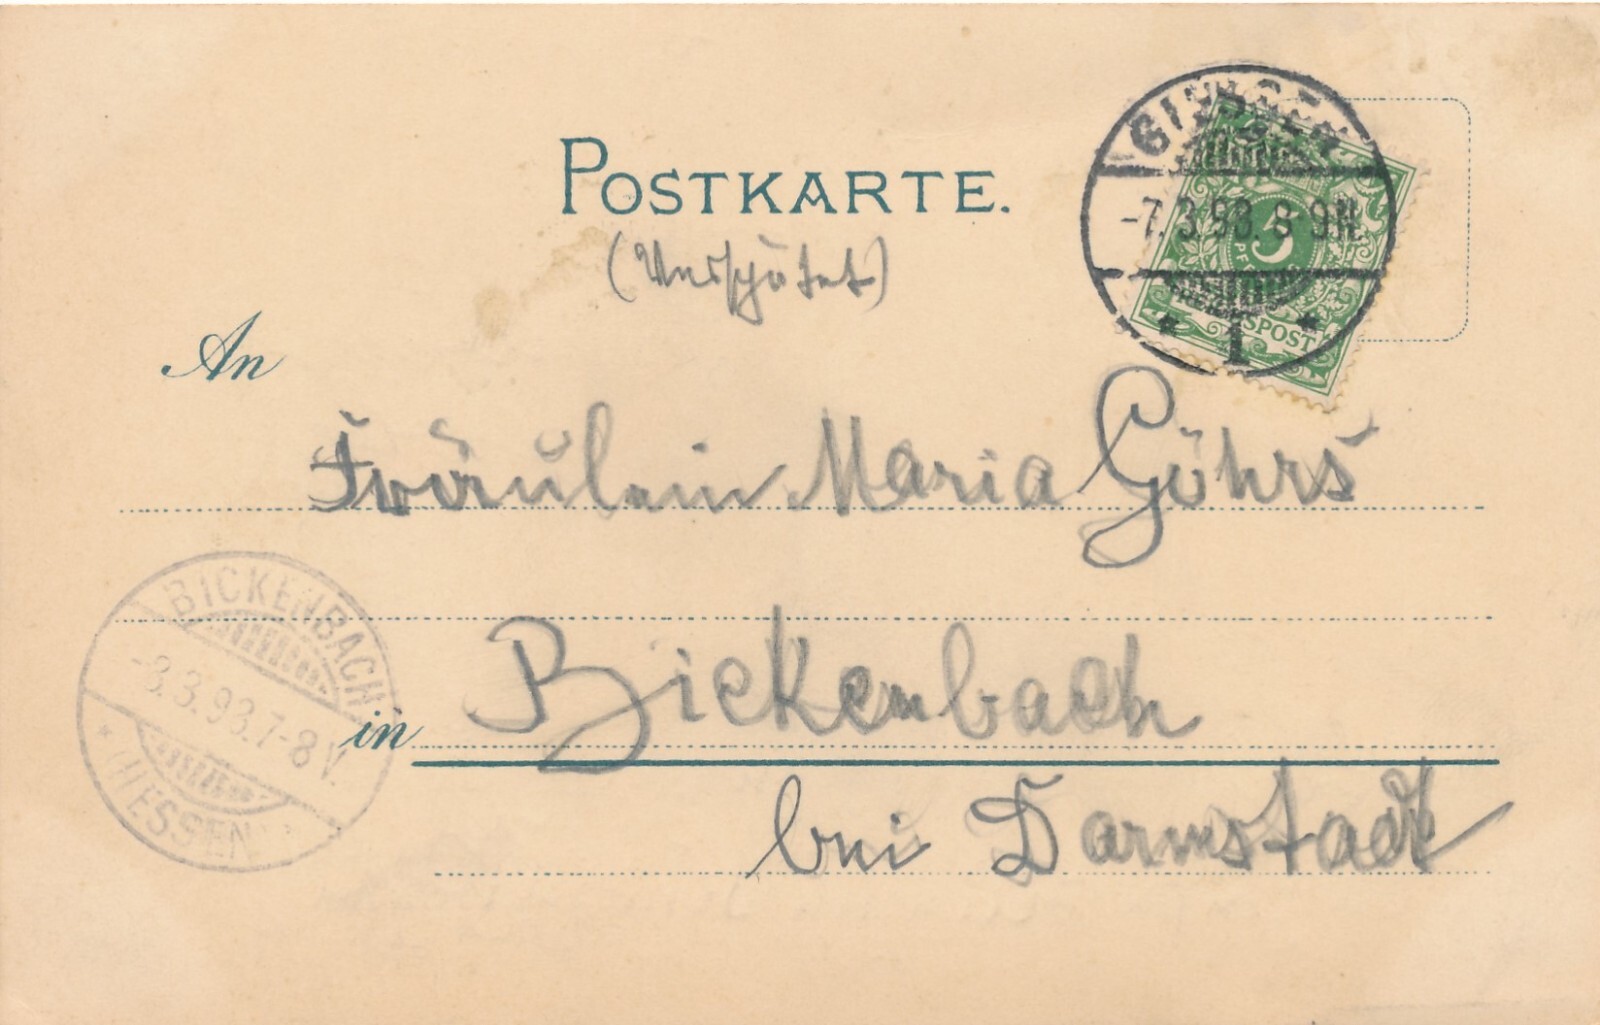 POSTKARTE.
(Verspätet)
GIESSEN
-7.3.98. 8-9N.
1
5
PFENNIG
REICHSPOST
An
Fräulein Maria Göhrs
BICKENBACH
-8.3.98.7-8V.
(HESSEN)
in Bickenbach
bei Darmstadt